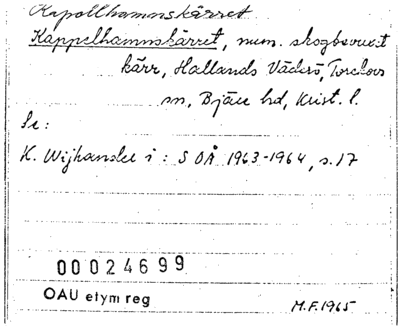 Kapellhamnskärret
Kappelhamnskärret, num. skogbevuxet
kärr, Hallands Väderö, Torekovs
sn, Bjäre hd, Krist. l.
Se:
K. Wijhander i: SOÅ 1963-1964, s. 17
00024699
OAU etym reg
M.F. 1965